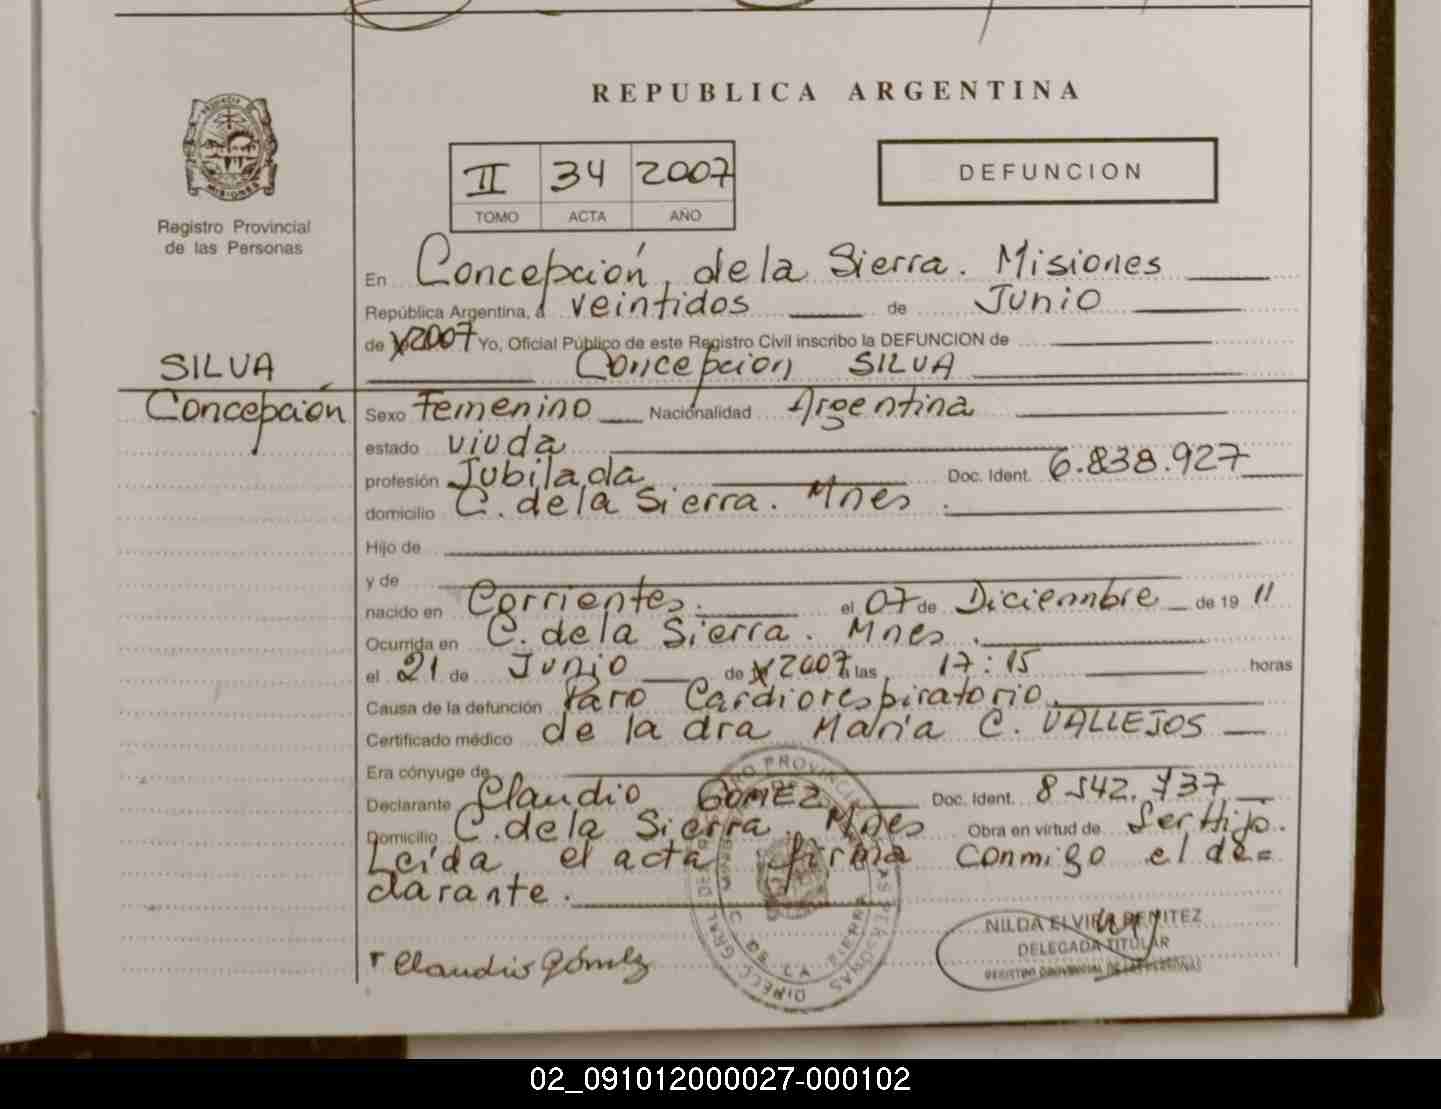 REPUBLICA ARGENTINA
II 34 2007
TOMO ACTA AÑO
DEFUNCION
PROVINCIA DE
MISIONES
Registro Provincial
de las Personas
SILVA
Concepción
En Concepción de la Sierra. Misiones
República Argentina, a veintidos de Junio
de 2007 Yo, Oficial Público de este Registro Civil inscribo la DEFUNCION de
Concepcion SILVA
Sexo Femenino Nacionalidad Argentina
estado viuda
profesión Jubilada Doc. Ident. 6.838.927
domicilio C. de la Sierra. Mnes
Hijo de
y de
nacido en Corrientes. el 07 de Diciembre de 19 11
Ocurrida en C. de la Sierra. Mnes.
el 21 de Junio de 2007 a las 17:15 horas
Causa de la defunción Paro Cardiorespiratorio.
Certificado médico de la dra María C. VALLEJOS
Era cónyuge de
Declarante Claudio GOMEZ Doc. Ident. 8.542.737
Domicilio C. de la Sierra. Mnes Obra en virtud de Ser Hijo.
Leída el acta firma conmigo el de=
clarante.
Claudio Gómez
NILDA ELVIRA BENITEZ
DELEGADA TITULAR
REGISTRO PROVINCIAL DE LAS PERSONAS
02_091012000027-000102